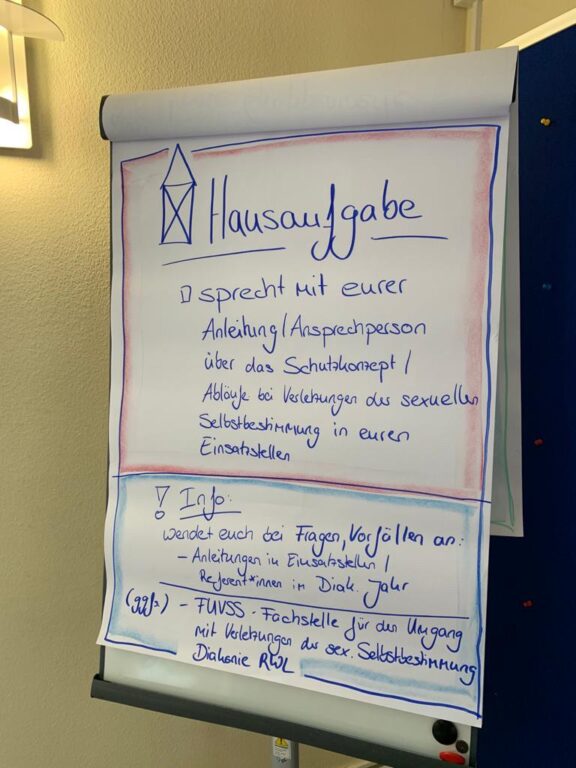 Hausaufgabe
sprecht mit eurer
Anleitung/Ansprechperson
über das Schutzkonzept /
Abläufe bei Verletzungen der sexuellen
Selbstbestimmung in euren
Einsatzstellen
! Info:
wendet euch bei Fragen, Vorfällen an:
- Anleitungen in Einsatzstellen /
Referent*innen im Diak. Jahr
(ggfs) - FUVSS - Fachstelle für den Umgang
mit Verletzungen der sex. Selbstbestimmung
Diakonie RWL